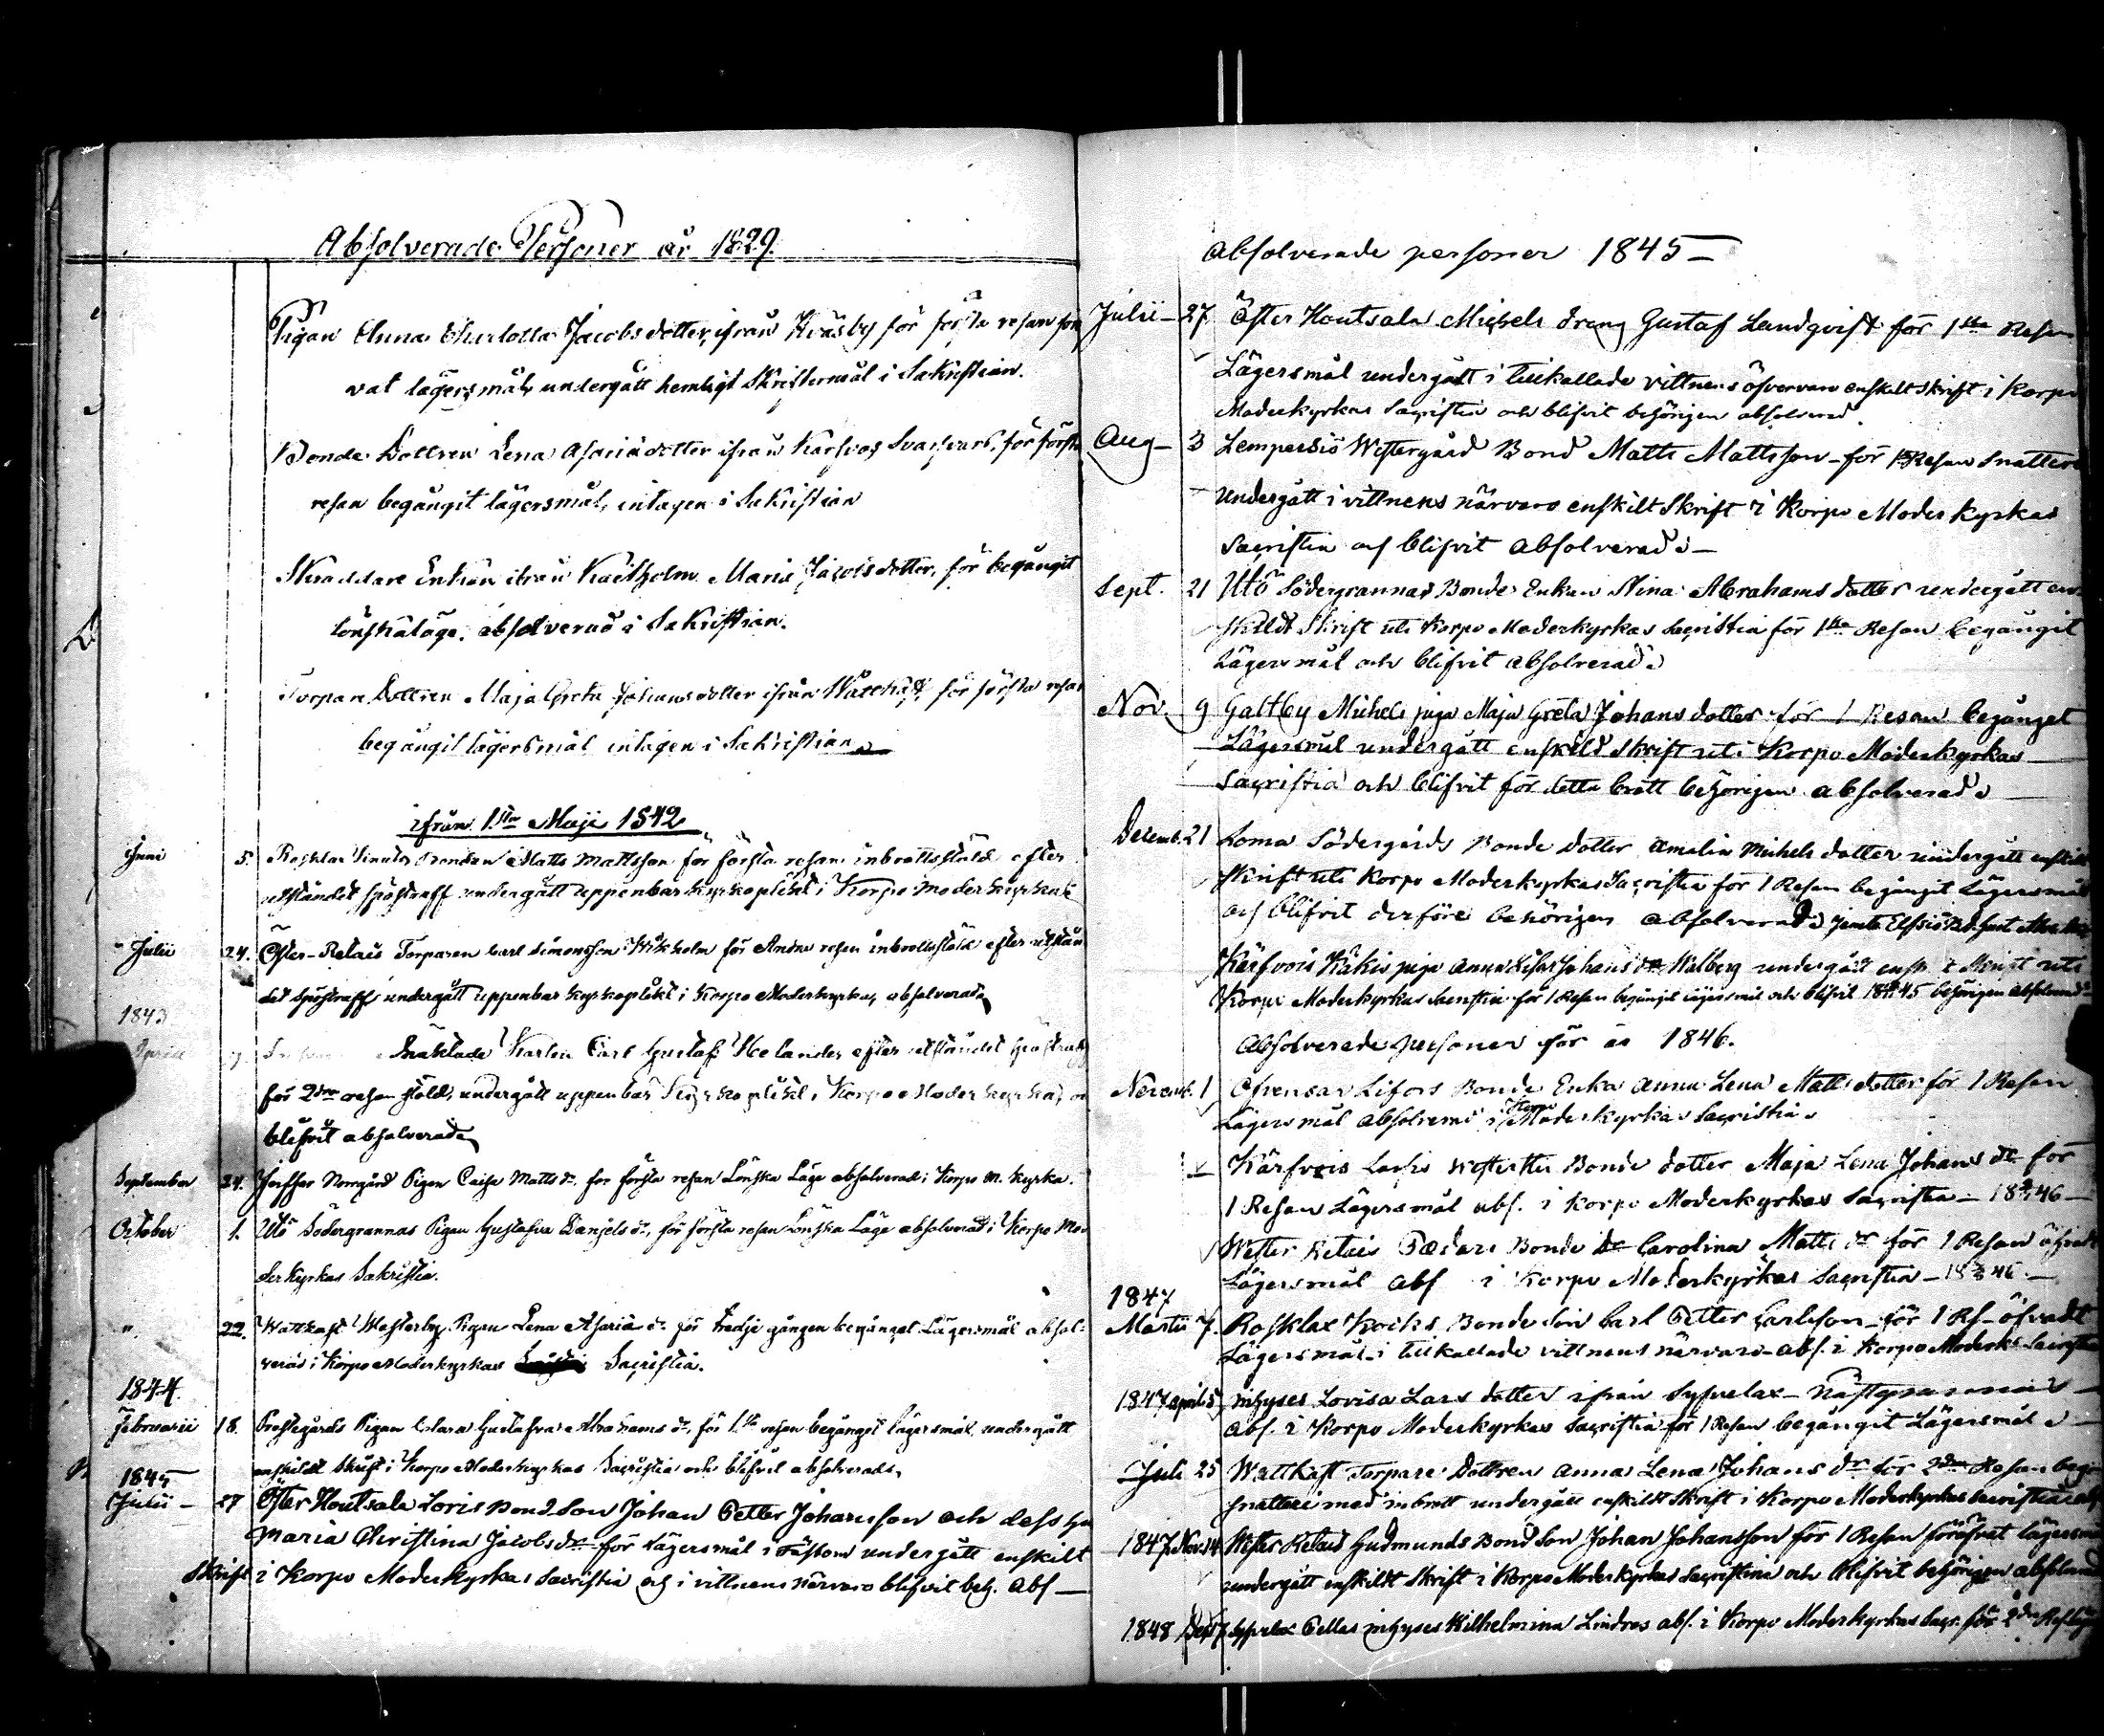 Absolverade Personer år 1829.
Pigan Anna Charlotta Jacobsdotter, ifrån Kräsby för första resan för
vat lägersmål, undergått hemligt Skriftermål i Sakristian.
Bonde Dottren Lena Asariædotter ifrån Kärfvos för första
resan begångit lägersmål, intagen i Sakristian
Skraddare Enkan ifrån Maria Jacobsdotter, för begångit
lönskaläge, absolverad i Sakristian.
Torpare Dottren Maja Greta Johansdotter ifrån Wattkast för första resan
begångit lägersmål intagen i Sakristian
ifrån 1sta Maji 1842
Juni 5. Rosklax Bonden Matts Mattsson för första resan inbrottsstöld efter
utståndet spöstraff undergått uppenbar kyrkoplikt i Korpo moderkyrka
Julii 24. Öster-Retais Torparen Carl Simonsson Vikholm för Andra resan inbrottsstöld efter utstån
det spöstraff, undergått uppenbar kyrkoplikt i Korpo Moderkyrka, absolverad
1843
April 9. Karlen Carl Gustaf Helander efter utståndet spöstraff
för 2dra resan stöld, undergått uppenbar Kyrkoplikt i Korpo Moderkyrka, och
blifvit absolverad
September 24. Norrgård Pigan Caisa Matts dr. for första resan Lönska Läge absolverad i Korpo M. Kyrka.
October 1. Utö Södergrannas Pigan Gustafva Danjels dr, för första resan Lönska Läge absolverad i Korpo Mo
derkyrkas Sakristia.
" 22. Wattkast Westerby Pigan Lena Asariæ dr för tredje gången begånget Lägersmål absol-
verad i Korpo Moderkyrkas Sacristia.
1844
Februarii 18. Prestegårds Pigan Clara Gustafva Abrahams dr, för 1sta resan begånget lägersmål undergått
enskildt Skrift i Korpo Moderkyrkas Sacristia och blifvit absolverad
1845
Julii 27 Öster Houtsala Loris Bond Son Johan Petter Johansson och dess hu
Maria Christina Jacobs dr för Lägersmål i Fästom undergått enskilt
Skrift i Korpo Moderkyrkas Sacristia och i vittnens närvaro blifvit beh. Abs
Absolverade personer 1845
Julii 27 Öster Houtsala Michels dreng Gustaf Lundqvist för 1sta Resan
Lägersmål undergått i tilkallade vittnens öfvervaro enskilt skrift i Korpo
Moderkyrkas Sacristia och blifvit behörigen absolverad.
Aug 3 Lempersiö Westergård Bond Matts Mattsson för 1sta Resan Snatteri
undergått i vittnens närvaro enskilt Skrift i Korpo Moder Kyrkas
Sacristia och blifvit absolverad
Sept. 21 Utö Södergrannas Bonde Enkan Stina Abrahams dotter undergått en-
skildt Skrift uti Korpo Moderkyrkas Sacristia för 1sta Resan begångit
Lägersmål och blifvit absolverad
Nov. 9 Galtby Michels piga Maja Greta Johans dotter för 1 Resan begånget
Lägersmål undergått enskild Skrift uti Korpo Moderkyrkas
Sacristia och blifvit för detta brott behörigen absolverad
Decemb. 21 Loma Södergårds Bonde dotter Amalia Michels dotter undergått enskilt
skrift uti Korpo Moderkyrkas Sacristia för 1 Resan begångit Lägersmål
och blifvit derföre behörigen absolverad
Kärfvois Käkis piga Anna Lisa Johans dr Walberg undergått ensk skrift uti
Korpo Moderkyrkas Sacristia för 1 Resan begångit lägersmål och blifvit behörigen absolverad
Absolverade personer för år 1846.
Novemb. 1 Ofvensar Lifors Bonde Enka Anna Lena Matts dotter för 1 Resan
Lägersmål absolverad i Korpo Moderkyrkas Sacristia
Kärfvois Bonde dotter Maja Lena Johans dr för
1 Resan Lägersmål abs. i Korpo Moderkyrkas Sacristia
Wester Retais Bonde dr Carolina Matts dr för 1 Resan öfvadt
Lägersmål abs i Korpo Moderkyrkas Sacristia
1847
Martii 7. Rosklax Kocks Bonde Son Carl Petter Carlsson för 1 Rs öfvadt
Lägersmål i tilkallade vittnens närvaro abs. i Korpo Moderk: Sacristia
1847 april 5 inhyses Lovisa Lars dotter ifrån
abs. i Korpo Moderkyrkas Sacristia för 1 Resan begångit Lägersmål
Juli 25 Wattkast Torpare Dottren Anna Lena Johans dr för 2dra Resan
snatteri med inbrott undergått enskildt Skrift i Korpo Moderkyrkas Sacristia
1847 Nov. 14 Wester Retais Gudmunds Bond Son Johan Johansson för 1 Resan föröfvat lägersmål
undergått enskildt Skrift i Korpo Moderkyrkas Sacristia och blifvit behörigen absolverad
1848 Pellas inhyses Wilhelmina Lindros abs. i Korpo Moderkyrkas Sacr. för 2dra